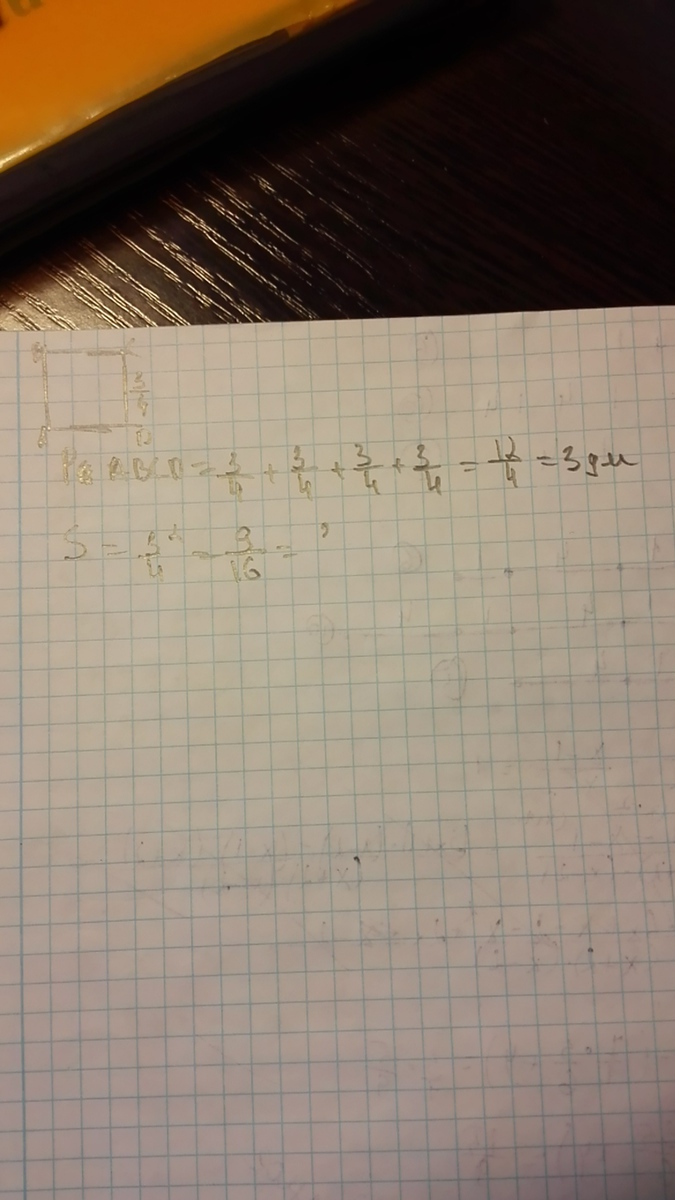 B C
3/4
A D
P ABCD = 3/4 + 3/4 + 3/4 + 3/4 = 12/4 = 3 дм
S = 3/4² = 9/16 =